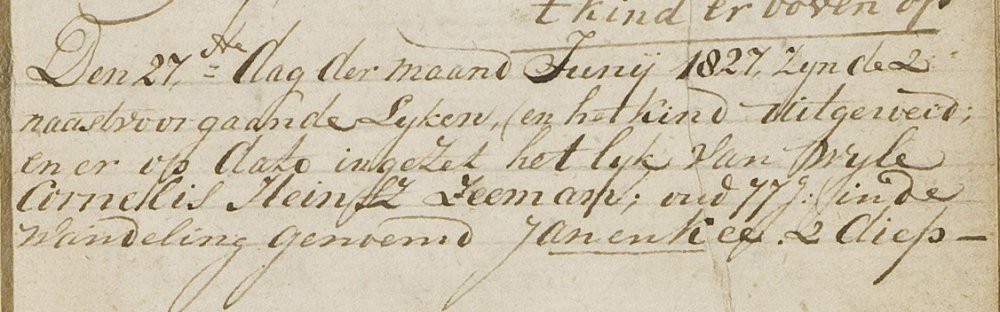 t kind er boven op
Den 27.ste dag der maand Junij 1827, Zyn de 2
naastvoorgaande Lyken, (en het kind uitgeweid;
en er op dato ingezet het lyk van wyle
Cornelis Heinsz Zeeman; oud 77 j: (in de
Wandeling genoemd Jan en Kee. 2 diep —